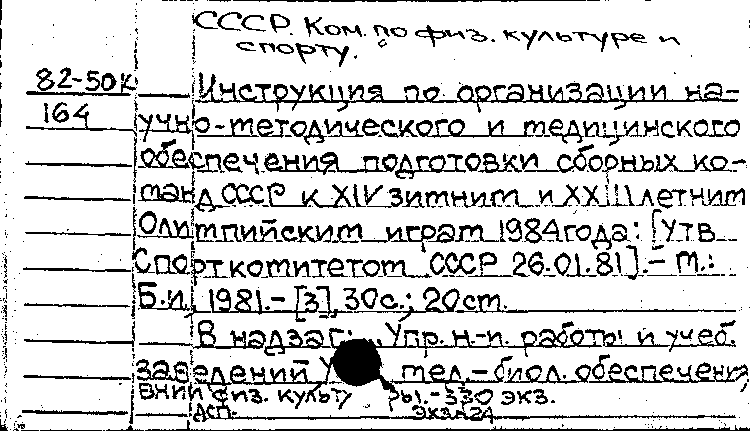 СССР. Ком. по физ. культуре и
спорту.
82-50К Инструкция по организации на-
164
учно-методического и медицинского
обеспечения подготовки сборных ко-
манд СССР к XIV зимним и XXIII летним
Олимпийским играм 1984 года: [Утв
Спорткомитетом СССР 26.01.81].- М.:
Б.и, 1981.- [3], 30с.; 20см.
В надзаг: Упр. н-и. работы и учеб.
заведений Упр. мед.-биол. обеспечени
физ. культуры.-330 экз.
ДСП. Экз.№24